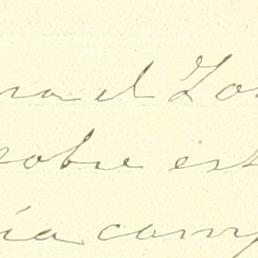 ra el Zo
sobre est
ía com